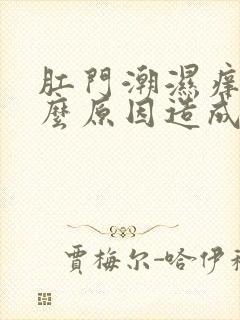 肛門潮濕痒
麼原因造成
賈梅尔-哈伊